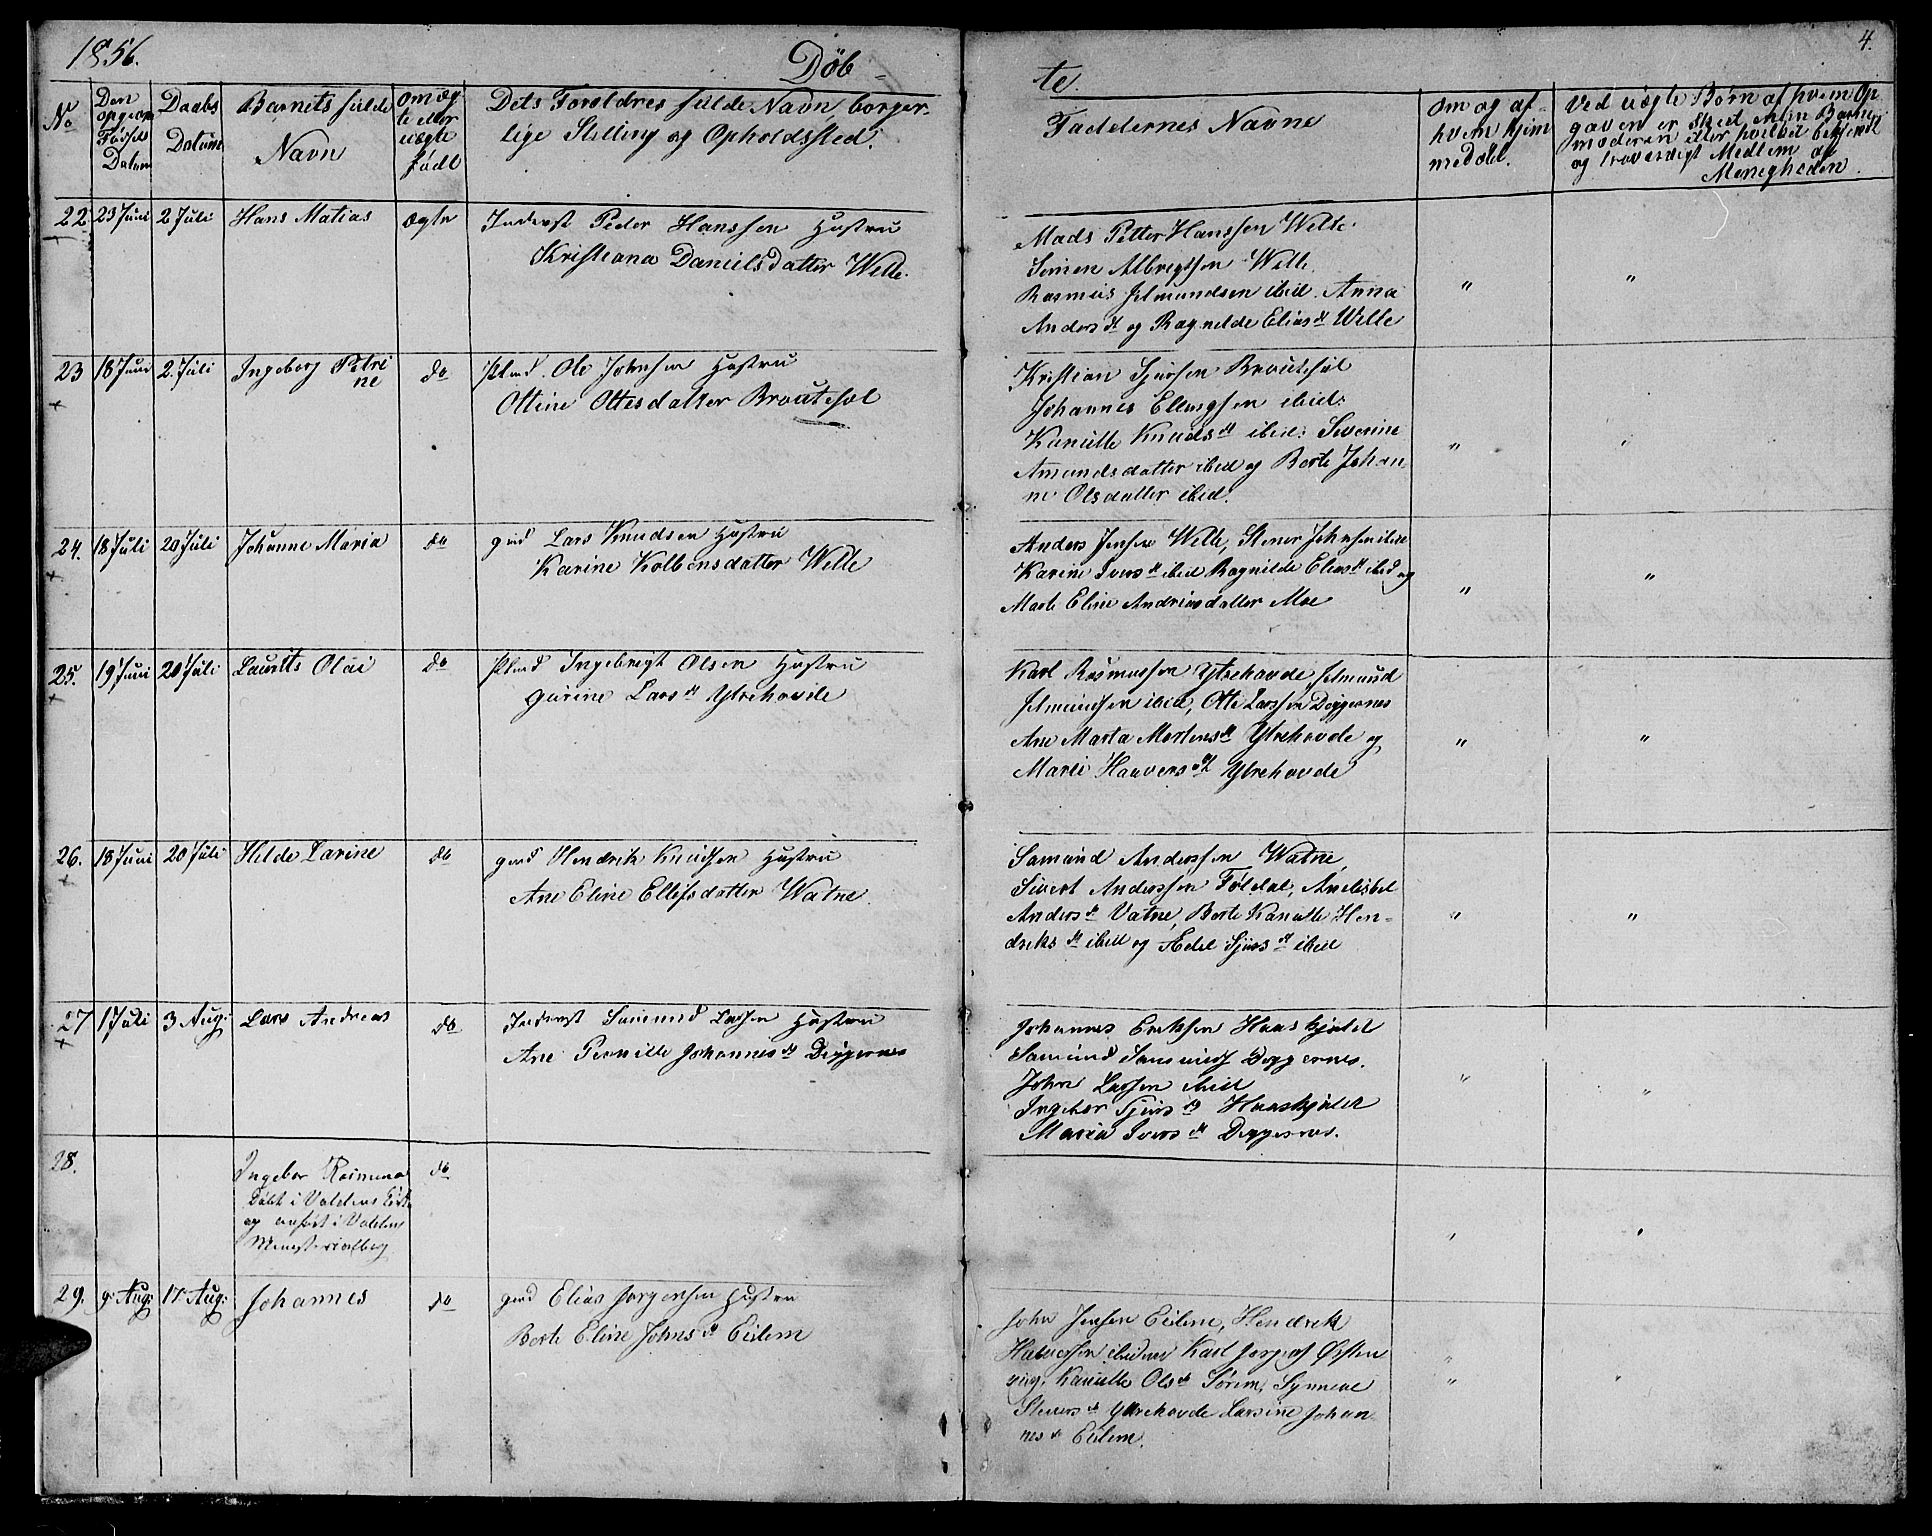 1856.
Döb-
te.
4.
No
Den opgivne Födsels Datum
Daabs Datum
Barnets fulde Navn
Om ægte eller uægte födt
Dets Foreldres fulde Navn, borgerlige Stilling og Opholdssted.
Faddernes Navne
Om og af hvem hjemmedøbt.
Ved uægte Børn af hvem Opgaven er skeet, om Barnemoderen eller hvilket bekjendt og troværdigt Medlem af Menigheden.
22. 23 Juni 2 Juli Hans Matias ægte Inderst Peder Hanssen Hustru
Kristiana Danielsdatter Welle.
Mads Petter Hanssen Welle.
Simen Albregtsen Welle.
Rasmus Jetmundsen ibid. Anna
Anders dt og Ragnilde Elias dt Welle
" "
23 18 Juni 2. Juli Ingeborg Petri
ne
do Plmd. Ole Johnsen Hustru
Oltine Ottesdatter Brautesæt
Kristian Sjursen Brautesæt
Johannes Ellingsen ibid:
Kanutte Knuds dt ibid: Severine
Amundsdatter ibid og Berte Johan
ne Olsdatter ibid.
" "
24. 18 Juli 20 Juli Johanne Maria do gmd Lars Knudsen Hustru
Karine Kolbensdatter Welle
Anders Jensen Welle, Stener Johnsen ibid
Karine Ivers dt ibid Ragnilde Elias dt ibid og
Marte Eline Andriasdatter Moe
" "
25. 19 Juni 20 Juli Laurits Olai do Plmd Ingebrigt Olsen Hustru
Gurine Lars dt Ytrehovde
Karl Rasmussen Ytrehovde, Jetmund
Jetmundsen ibid, Otte Larssen Digernes
Ane Marta Mortens dt Ytrehovde og
Marie Haavers dt Ytrehovde
" "
26. 18 Juni 20 Juli Hilde Larine do gmd Hendrik Knudsen Hustru
Ane Eline Ellefsdatter Watne.
Samund Anderssen Watne,
Sivert Anderssen Foldal, Anelisbet
Anders dt Vatne, Berte Kanutte Hen-
driks dt ibid og Ædel Sjurs dt ibid
" "
27 1 Juli 3 Aug: Lars Andreas do Inderst Samund Larsen Hustru
Ane Pernille Johannes dt Digernes
Johannes Eriksen Haaskjolet
Samund Samunds Digernes.
John Larsen ibid
Ingebor Sjurs dt Haaskjolet
Maria Ivers dt Digernes.
" "
28. Ingebor Rasmina do
Døbt i Voldens Kirke
og anført i Voldens
Ministerialbog
" "
29. 9 Aug: 17 Aug: Johannes do gmd Elias Jørgensen Hustru
Berte Eline Johns dt Eidem
John Jensen Eidem, Hendrik
ibidem Karl Østen
vig, Kanutte Ols dt Sørem, Synneve
Steners dt Ytrehovde Larsine Johan
nes dt Eidem.
" "